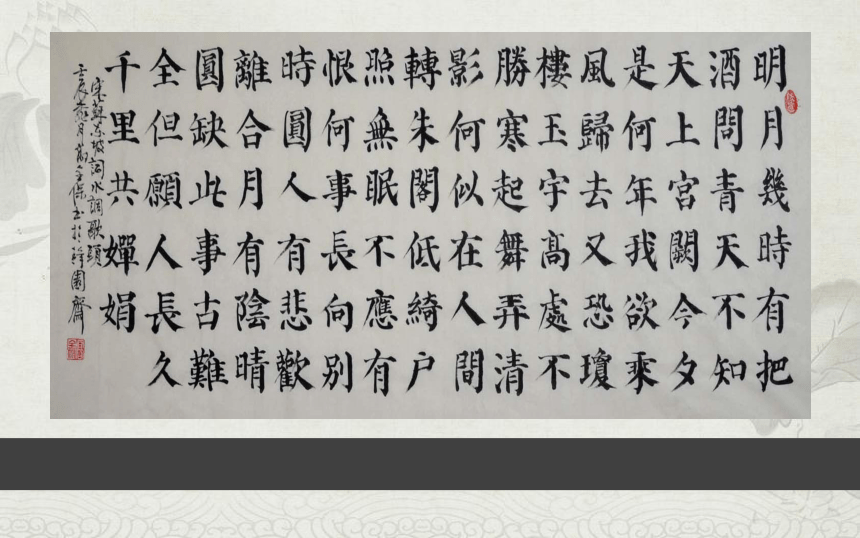 明月幾時有把
酒問青天不知
天上宮闕今夕
是何年我欲乘
風歸去又恐瓊
樓玉宇高處不
勝寒起舞弄清
影何似在人間
轉朱閣低綺户
照無眠不應有
恨何事長向别
時圓人有悲歡
離合月有陰晴
圓缺此事古難
全但願人長久
千里共嬋娟
宋蘇东坡詞水調歌頭
壬辰 月 書於 園齋